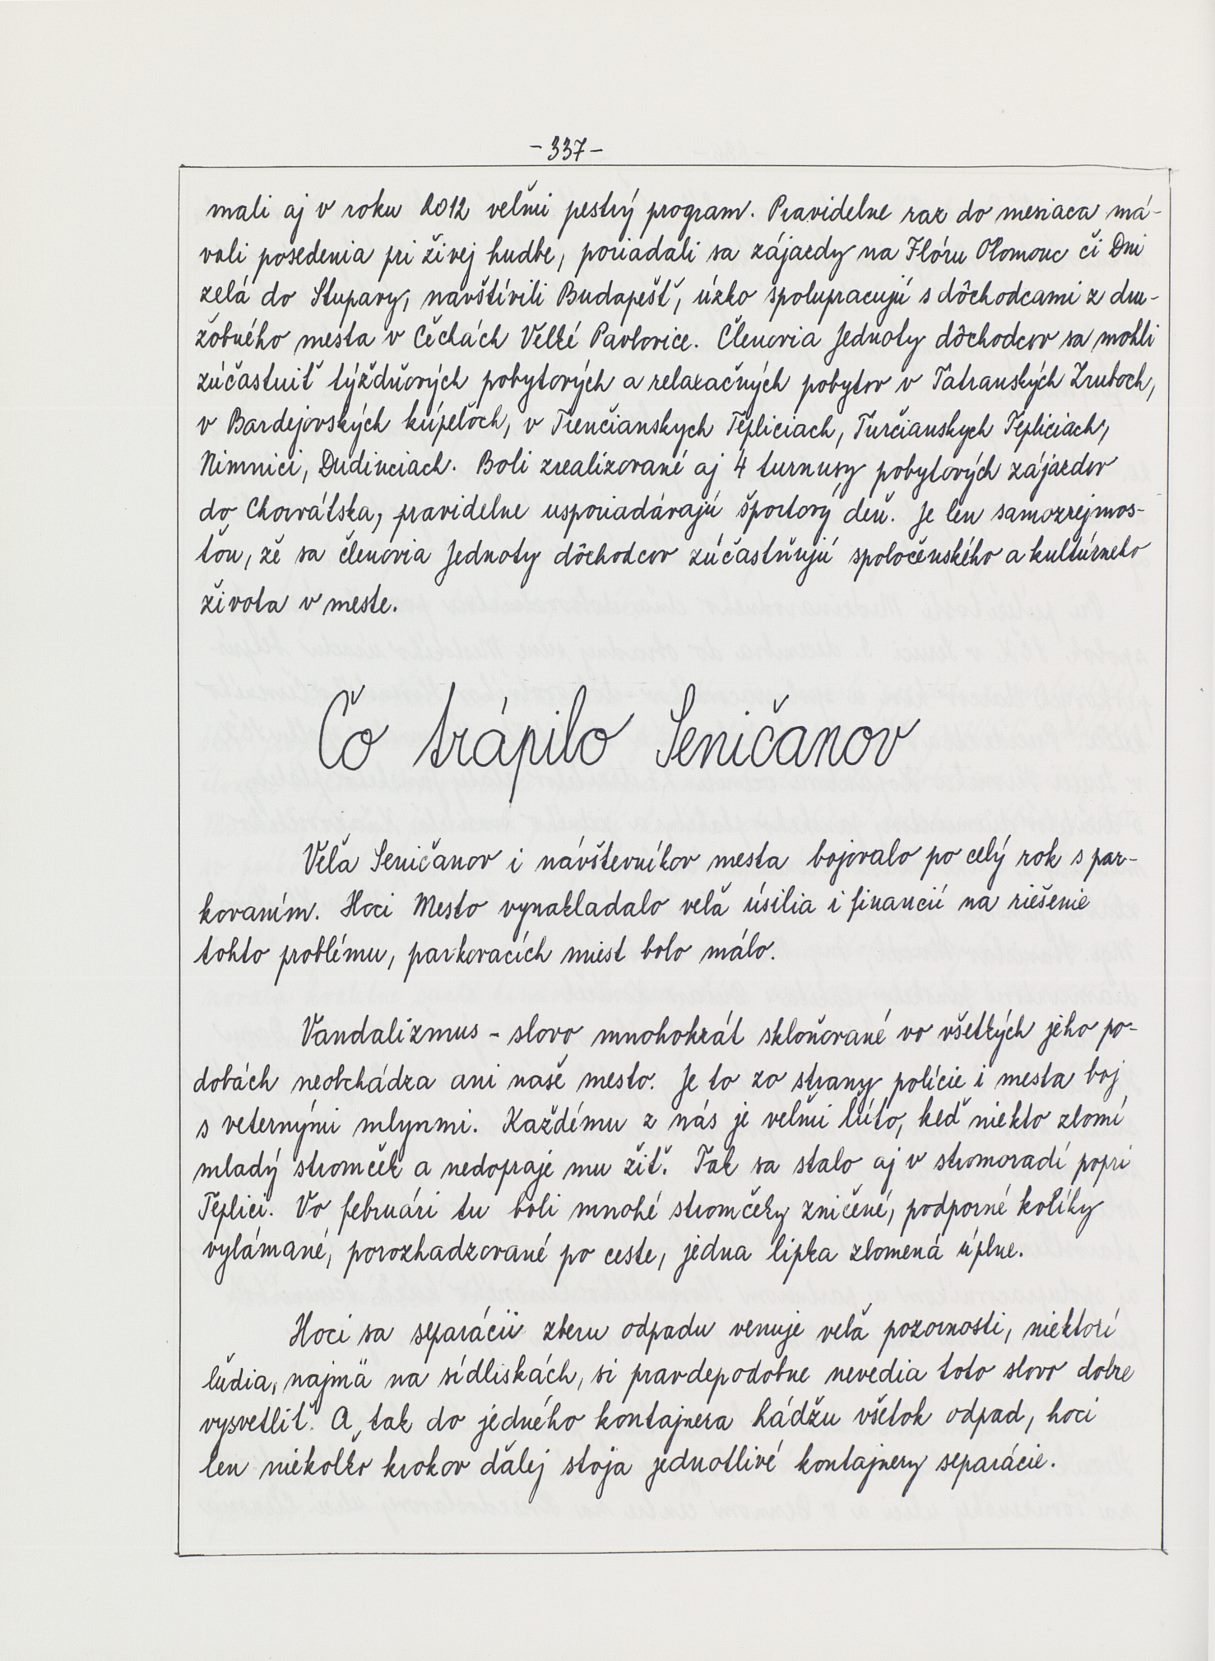 -337-
mali aj v roku 2012 veľmi pestrý program. Pravidelne raz do mesiaca má-
vali posedenia pri živej hudbe, poriadali sa zájazdy na Flóru Olomouc či Dni
zelá do Stupavy, navštívili Budapešť, úzko spolupracujú s dôchodcami z dru-
žobného mesta v Čechách Velké Pavlovice. Členovia Jednoty dôchodcov sa mohli
zúčastniť týždňových pobytových a relaxačných pobytov v Tatranských Zruboch,
v Bardejovských kúpeľoch, v Trenčianskych Tepliciach, Turčianskych Tepliciach,
Nimnici, Dudinciach. Boli zrealizované aj 4 turnusy pobytových zájazdov
do Chorvátska, pravidelne usporiadávajú športový deň. Je len samozrejmos-
ťou, že sa členovia Jednoty dôchodcov zúčastňujú spoločenského a kultúrneho
života v meste.
Čo trápilo Seničanov
Veľa Seničanov i návštevníkov mesta bojovalo po celý rok s par-
kovaním. Hoci Mesto vynakladalo veľa úsilia i financií na riešenie
tohto problému, parkovacích miest bolo málo.
Vandalizmus - slovo mnohokrát skloňované vo všetkých jeho po-
dobách neobchádza ani naše mesto. Je to zo strany polície i mesta boj
s veternými mlynmi. Každému z nás je veľmi ľúto, keď niekto zlomí
mladý stromček a nedopraje mu žiť. Tak sa stalo aj v stromoradí popri
Teplici. Vo februári tu boli mnohé stromčeky zničené, podporné kolíky
vylámané, porozhadzované po ceste, jedna lipka zlomená úplne.
Hoci sa separácii zberu odpadu venuje veľa pozornosti, niektorí
ľudia, najmä na sídliskách, si pravdepodobne nevedia toto slovo dobre
vysvetliť. A tak do jedného kontajnera hádžu všetok odpad, hoci
len niekoľko krokov ďalej stoja jednotlivé kontajnery separácie.